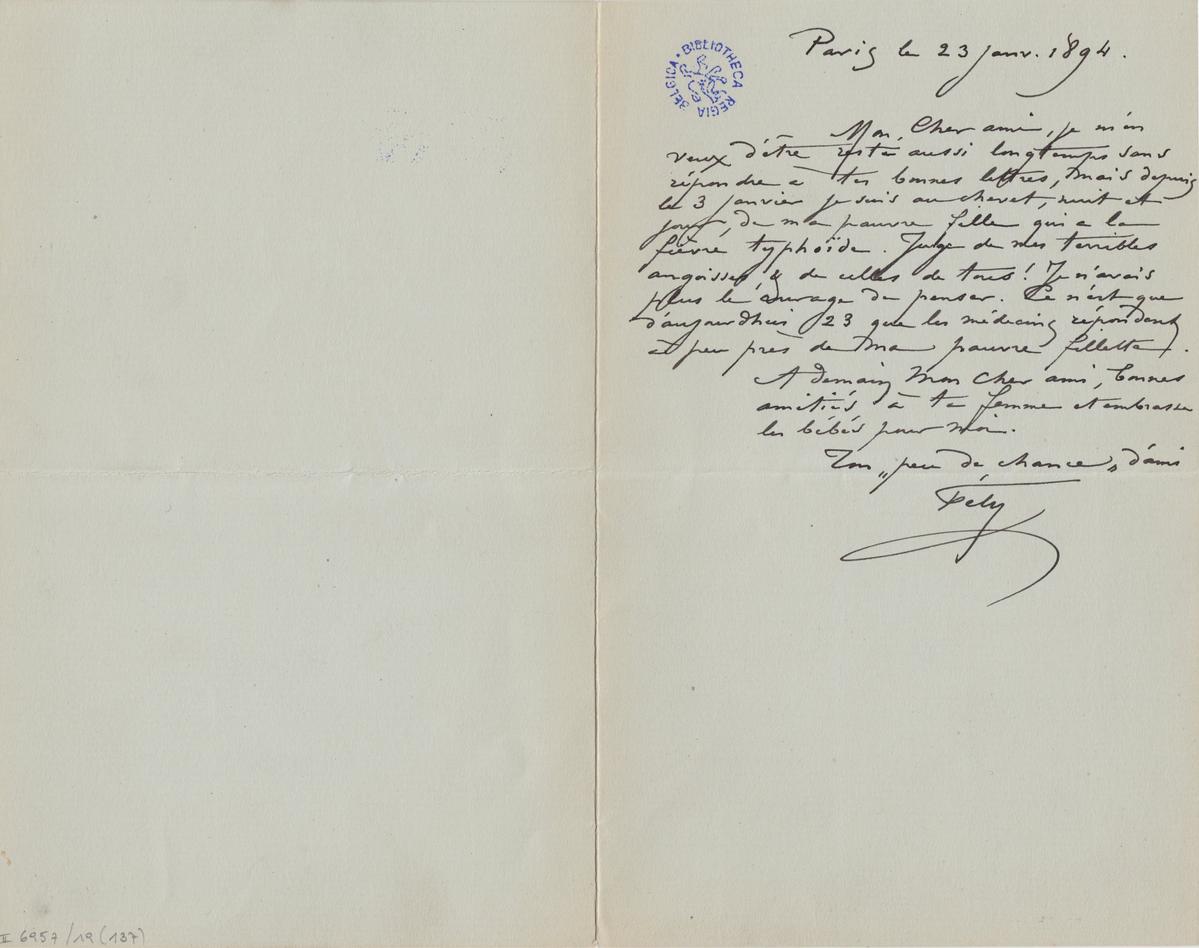 BIBLIOTHECA REGIA BELGICA
Paris le 23 janv. 1894.
Mon Cher ami, je m'en
veux d'être resté aussi longtemps sans
répondre à tes bonnes lettres, mais depuis
le 3 janvier je suis au chevet, nuit et
jour, de ma pauvre fille qui a la
fièvre typhoïde. Juge de mes terribles
angoisses, & de celles de tous! Je n'avais
plus le courage de penser. Ce n'est que
d'aujourdhui 23 que les médecins répondent
à peu près de ma pauvre fillette.
A demain Mon Cher ami, bonnes
amitiés à ta femme et embrasse
les bébés pour moi.
Ton „peu de chance„ d'ami
Fély
II 6957/19 (137)